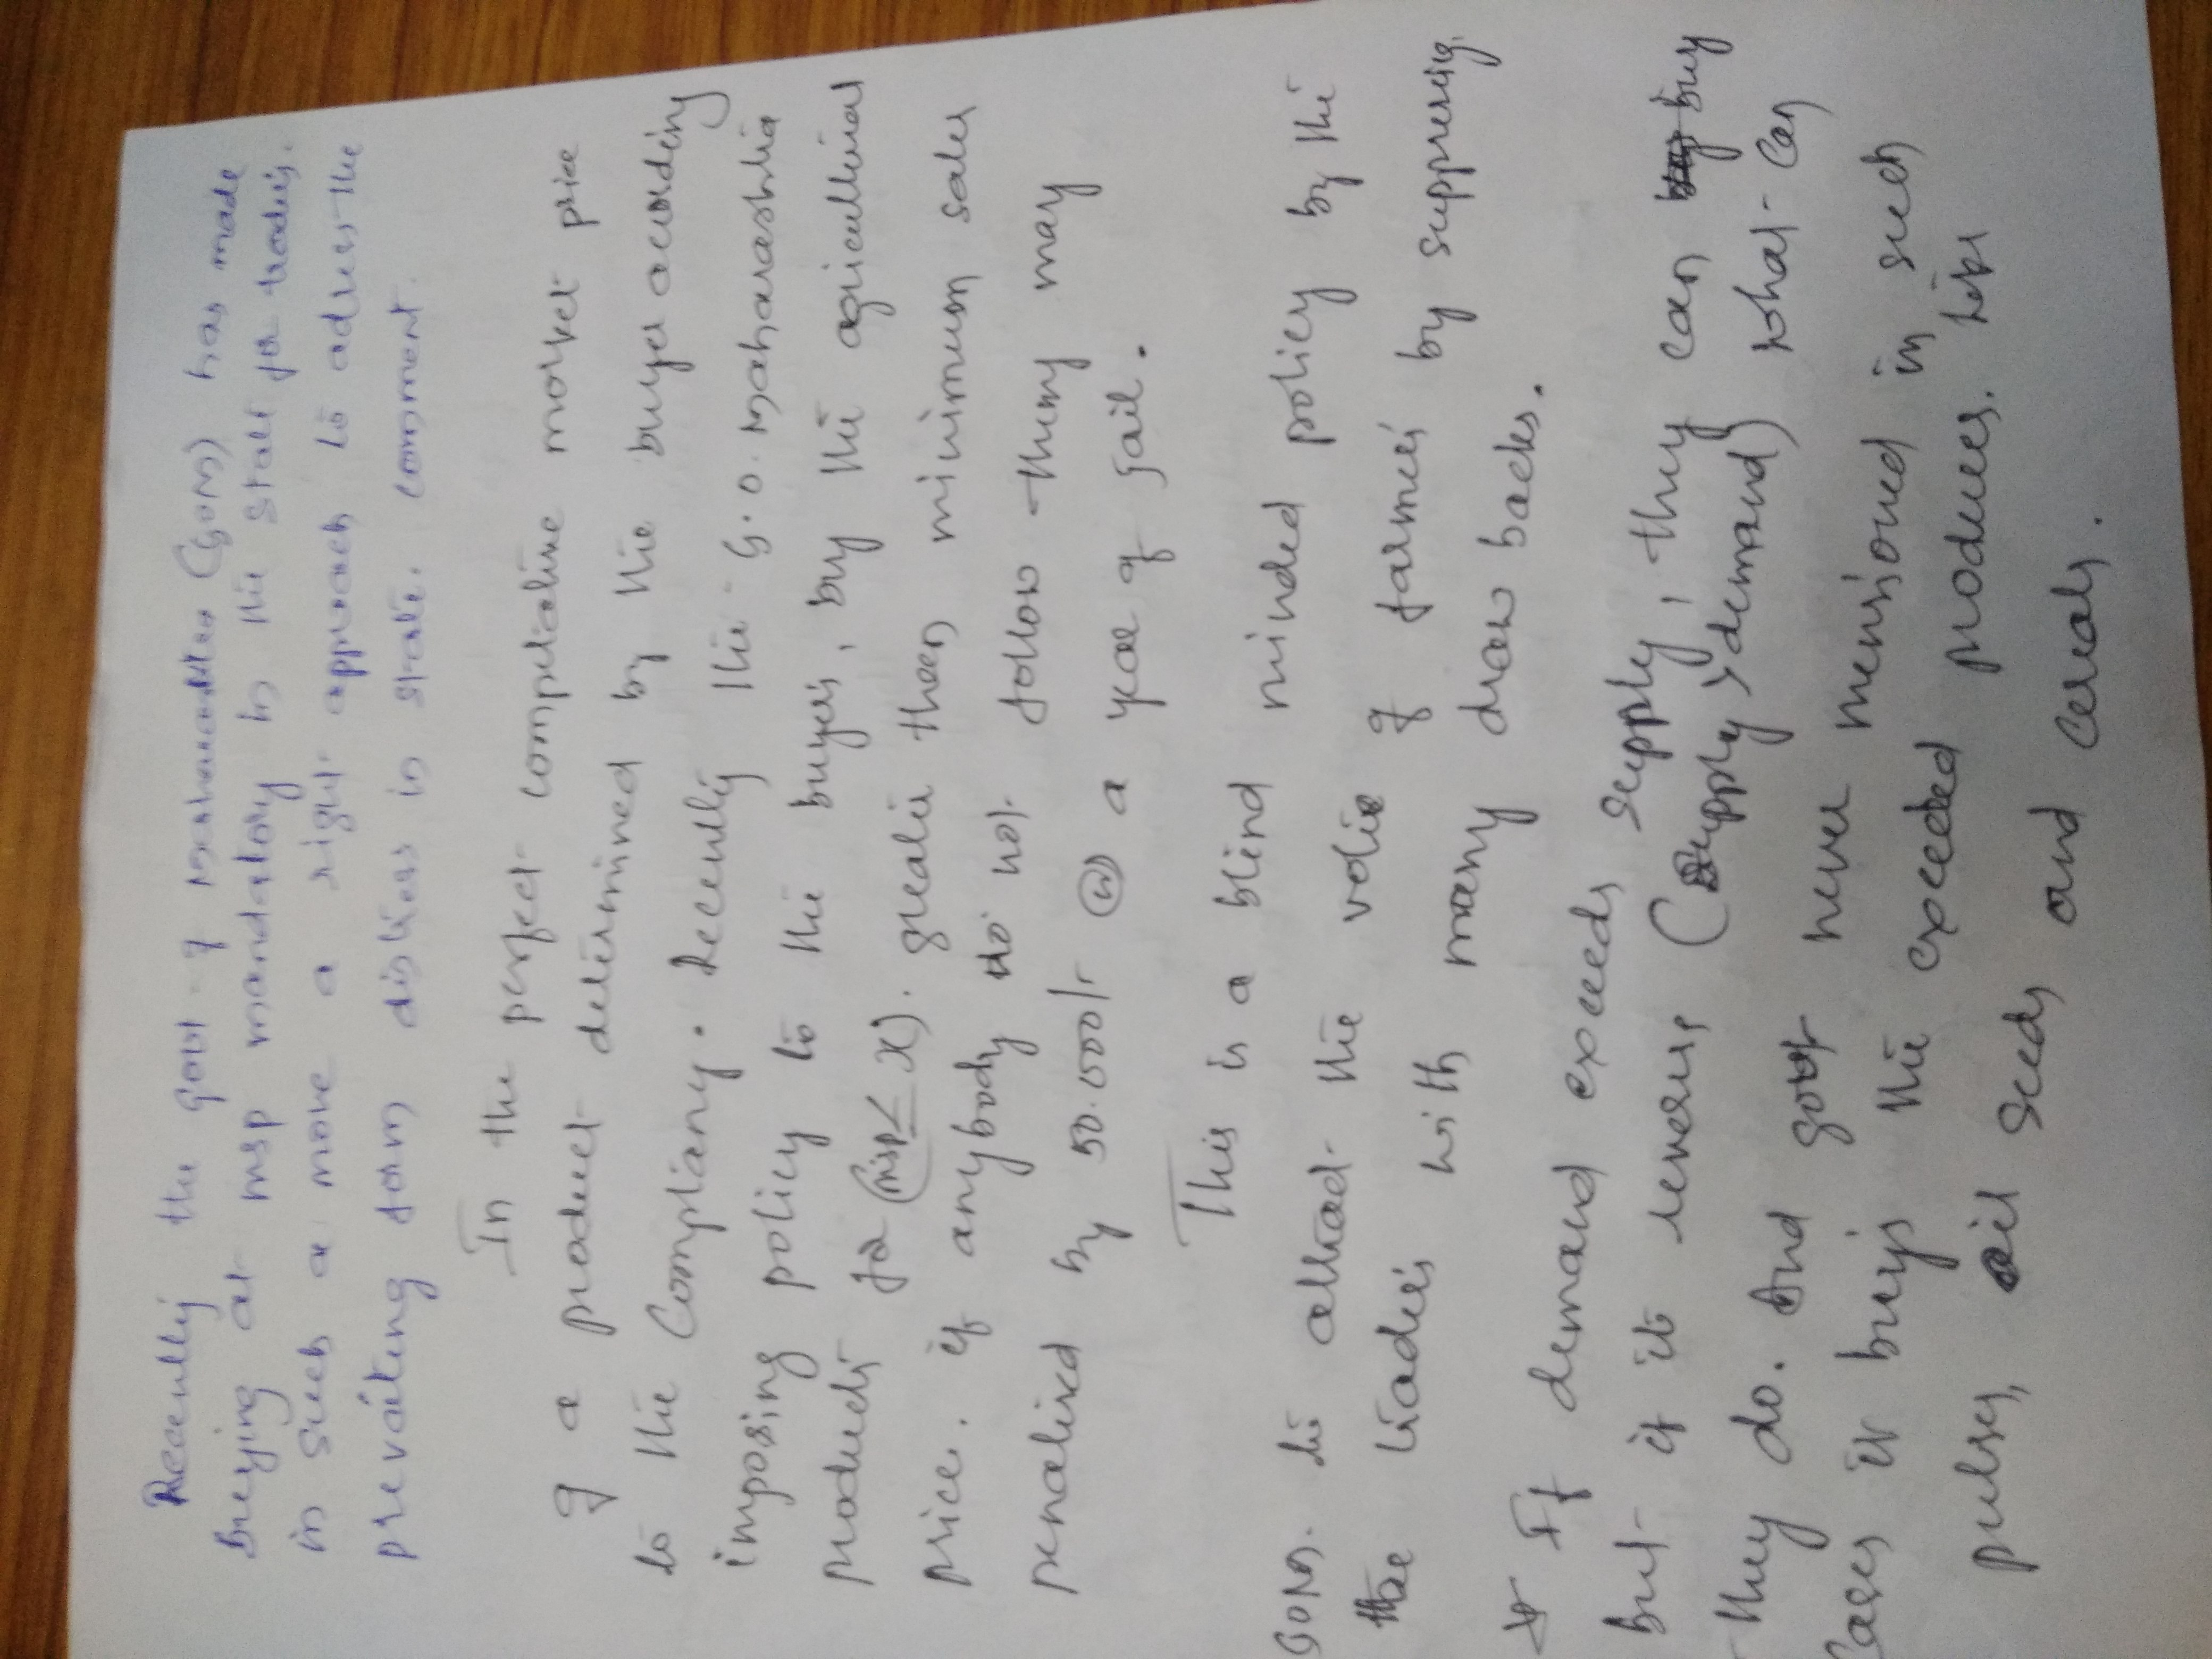 Recently the govt of Maharashtra (GoM) has made
Buying at msp mandatory in the state for traders.
in such a move a right approach to adress the
prevaiting farm distress in state. comment.
In the perfect competative market price
of a product determined by the buyer acording
to the Complany. Recently the G.O. Maharashtra
imposing policy to the buyers, buy the agricultural
products for (msp ≤ x). greater then minimum sales
price. if anybody do not follow they may
penalised by 50.000/- (or) a year of Jail.
This is a blind minded policy by the
GOM. to attract the votes of farmers by suppressig
the traders with many draw backs.
* If demand exceeds supply, they can buy
but if it revers (Supply > demand) what can
they do. And govt never mensioned in such
cases it buys the exceeded produces. like
pulses, oil seeds and cereals.